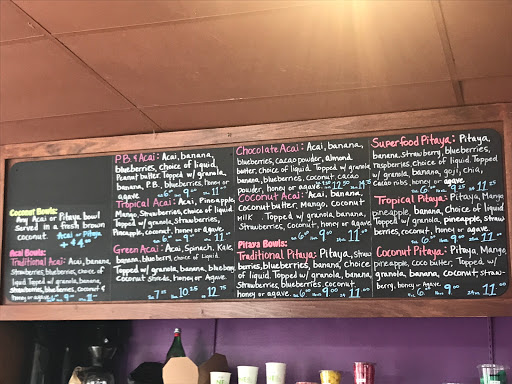 Coconut Bowls:
Any Acai or Pitaya bowl
Served in a fresh brown
coconut. Acai or Pitaya
+ 4.00
Acai Bowls:
Traditional Acai: Acai, banana,
Strawberries, blueberries, choice of
liquid. Topped w/ granola, banana,
strawberries, blueberries, coconut
honey or agave. 6.00 9.00 11.00
P.B. & Acai: Acai, banana,
blueberries, choice of liquid,
Peanut butter. Topped w/ granola,
banana, P.B., blueberries, honey or
agave. 6.00 9.00 11.00
Tropical Acai: Acai, Pineapple,
Mango, Strawberries, choice of liquid.
Topped w/ granola, Strawberries,
Pineapple, coconut, honey or agave.
6.00 9.00 11.00
Green Acai: Acai, Spinach, Kale,
banana, blueberry, choice of liquid.
Topped w/ granola, banana, blueberry,
Coconut shreds, honey or Agave.
7.00 10.25 12.75
Chocolate Acai: Acai, banana,
blueberries, cacao powder, almond
butter, choice of liquid. Topped w/ granola,
banana, blueberries, coconut, cacao
powder, honey or agave.
Coconut Acai: Acai, banana,
Coconut butter, Mango, coconut
milk. Topped w/ granola, banana,
Strawberries, Coconut, honey or agave.
6.00 9.00 11.00
Pitaya Bowls:
Traditional Pitaya: Pitaya, straw-
berries, blueberries, banana, Choice
of liquid. Topped w/ granola, banana,
Strawberries, blueberries, coconut,
honey or agave. 6.00 9.00 11.00
Superfood Pitaya: Pitaya,
banana, strawberry, blueberries,
raspberries. Choice of liquid. Topped
w/ granola, banana, goji, chia,
Cacao nibs, honey or agave.
6.00 9.25 11.25
Tropical Pitaya: Pitaya, Mango
pineapple, banana, Choice of liquid.
Topped w/ granola, pineapple, straw-
berries, coconut, honey or agave.
6.00 9.00 11.00
Coconut Pitaya: Pitaya, Mango,
pineapple, coco butter, Topped w/
granola, banana, coconut, straw-
berry, honey or Agave. 6.00 9.00 11.00